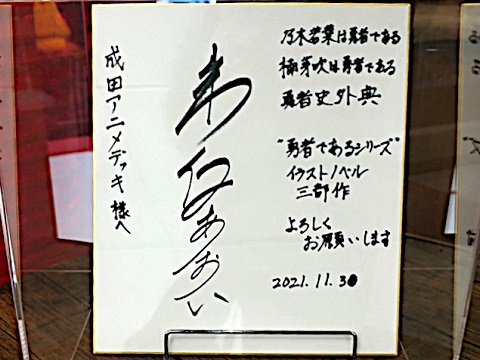 乃木若葉は勇者である
楠芽吹は勇者である
勇者史外典
"勇者であるシリーズ"
イラストノベル
三部作
よろしく
お願いします
2021.11.30
朱白あおい
成田アニメデッキ 様へ